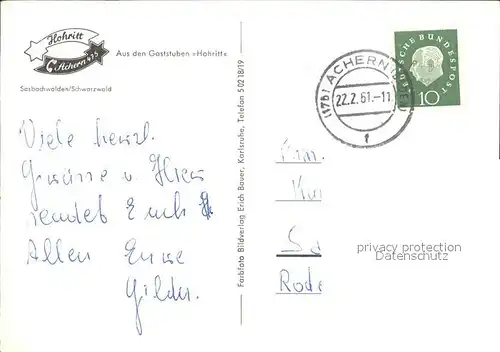 Hohritt
Achern
Aus den Gaststuben »Hohritt«
Sasbachwalden/Schwarzwald
Viele herzl.
Grüsse v. hier
sendet Euch
Allen Eure
Farbfoto Bildverlag Erich Bauer, Karlsruhe, Telefon 50218/19
(17b) ACHERN
22.2.61.-11
f
DEUTSCHE BUNDESPOST
10
Rode
privacy protection
Datenschutz